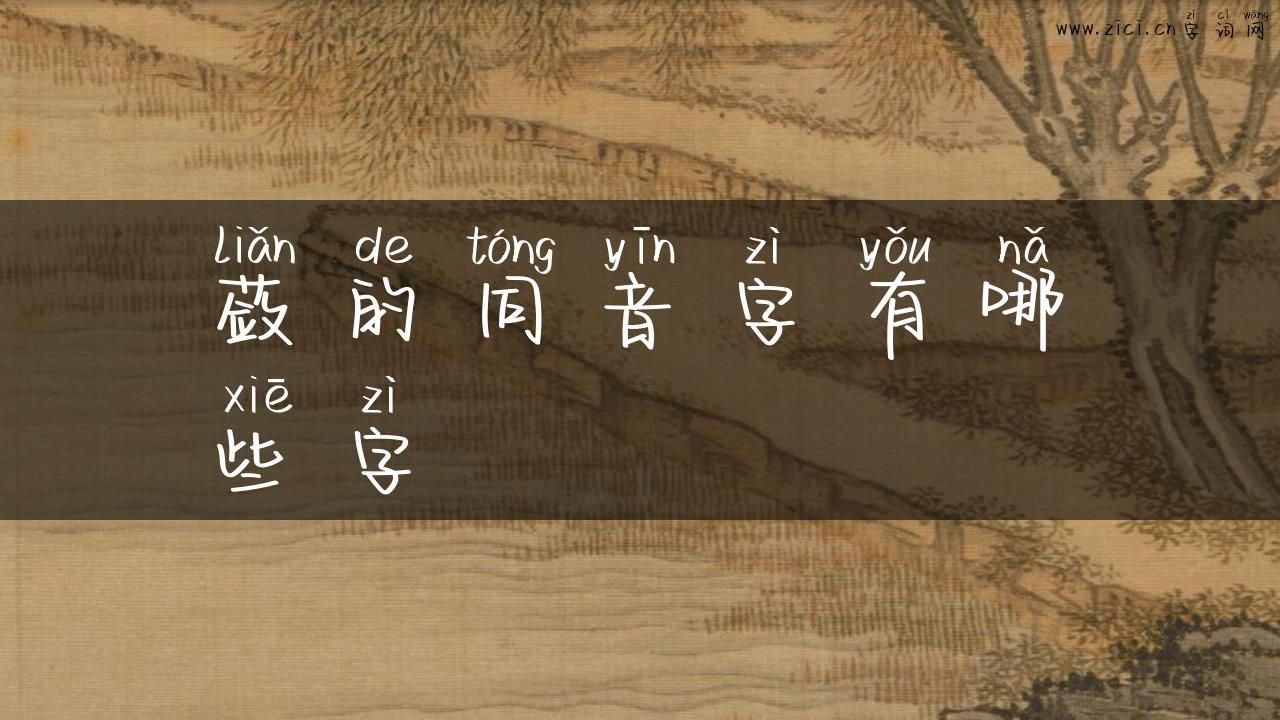 www.zici.cn字词网
zì cí wǎng
liǎn de tóng yīn zì yǒu nǎ
蔹的同音字有哪
xiē zì
些字